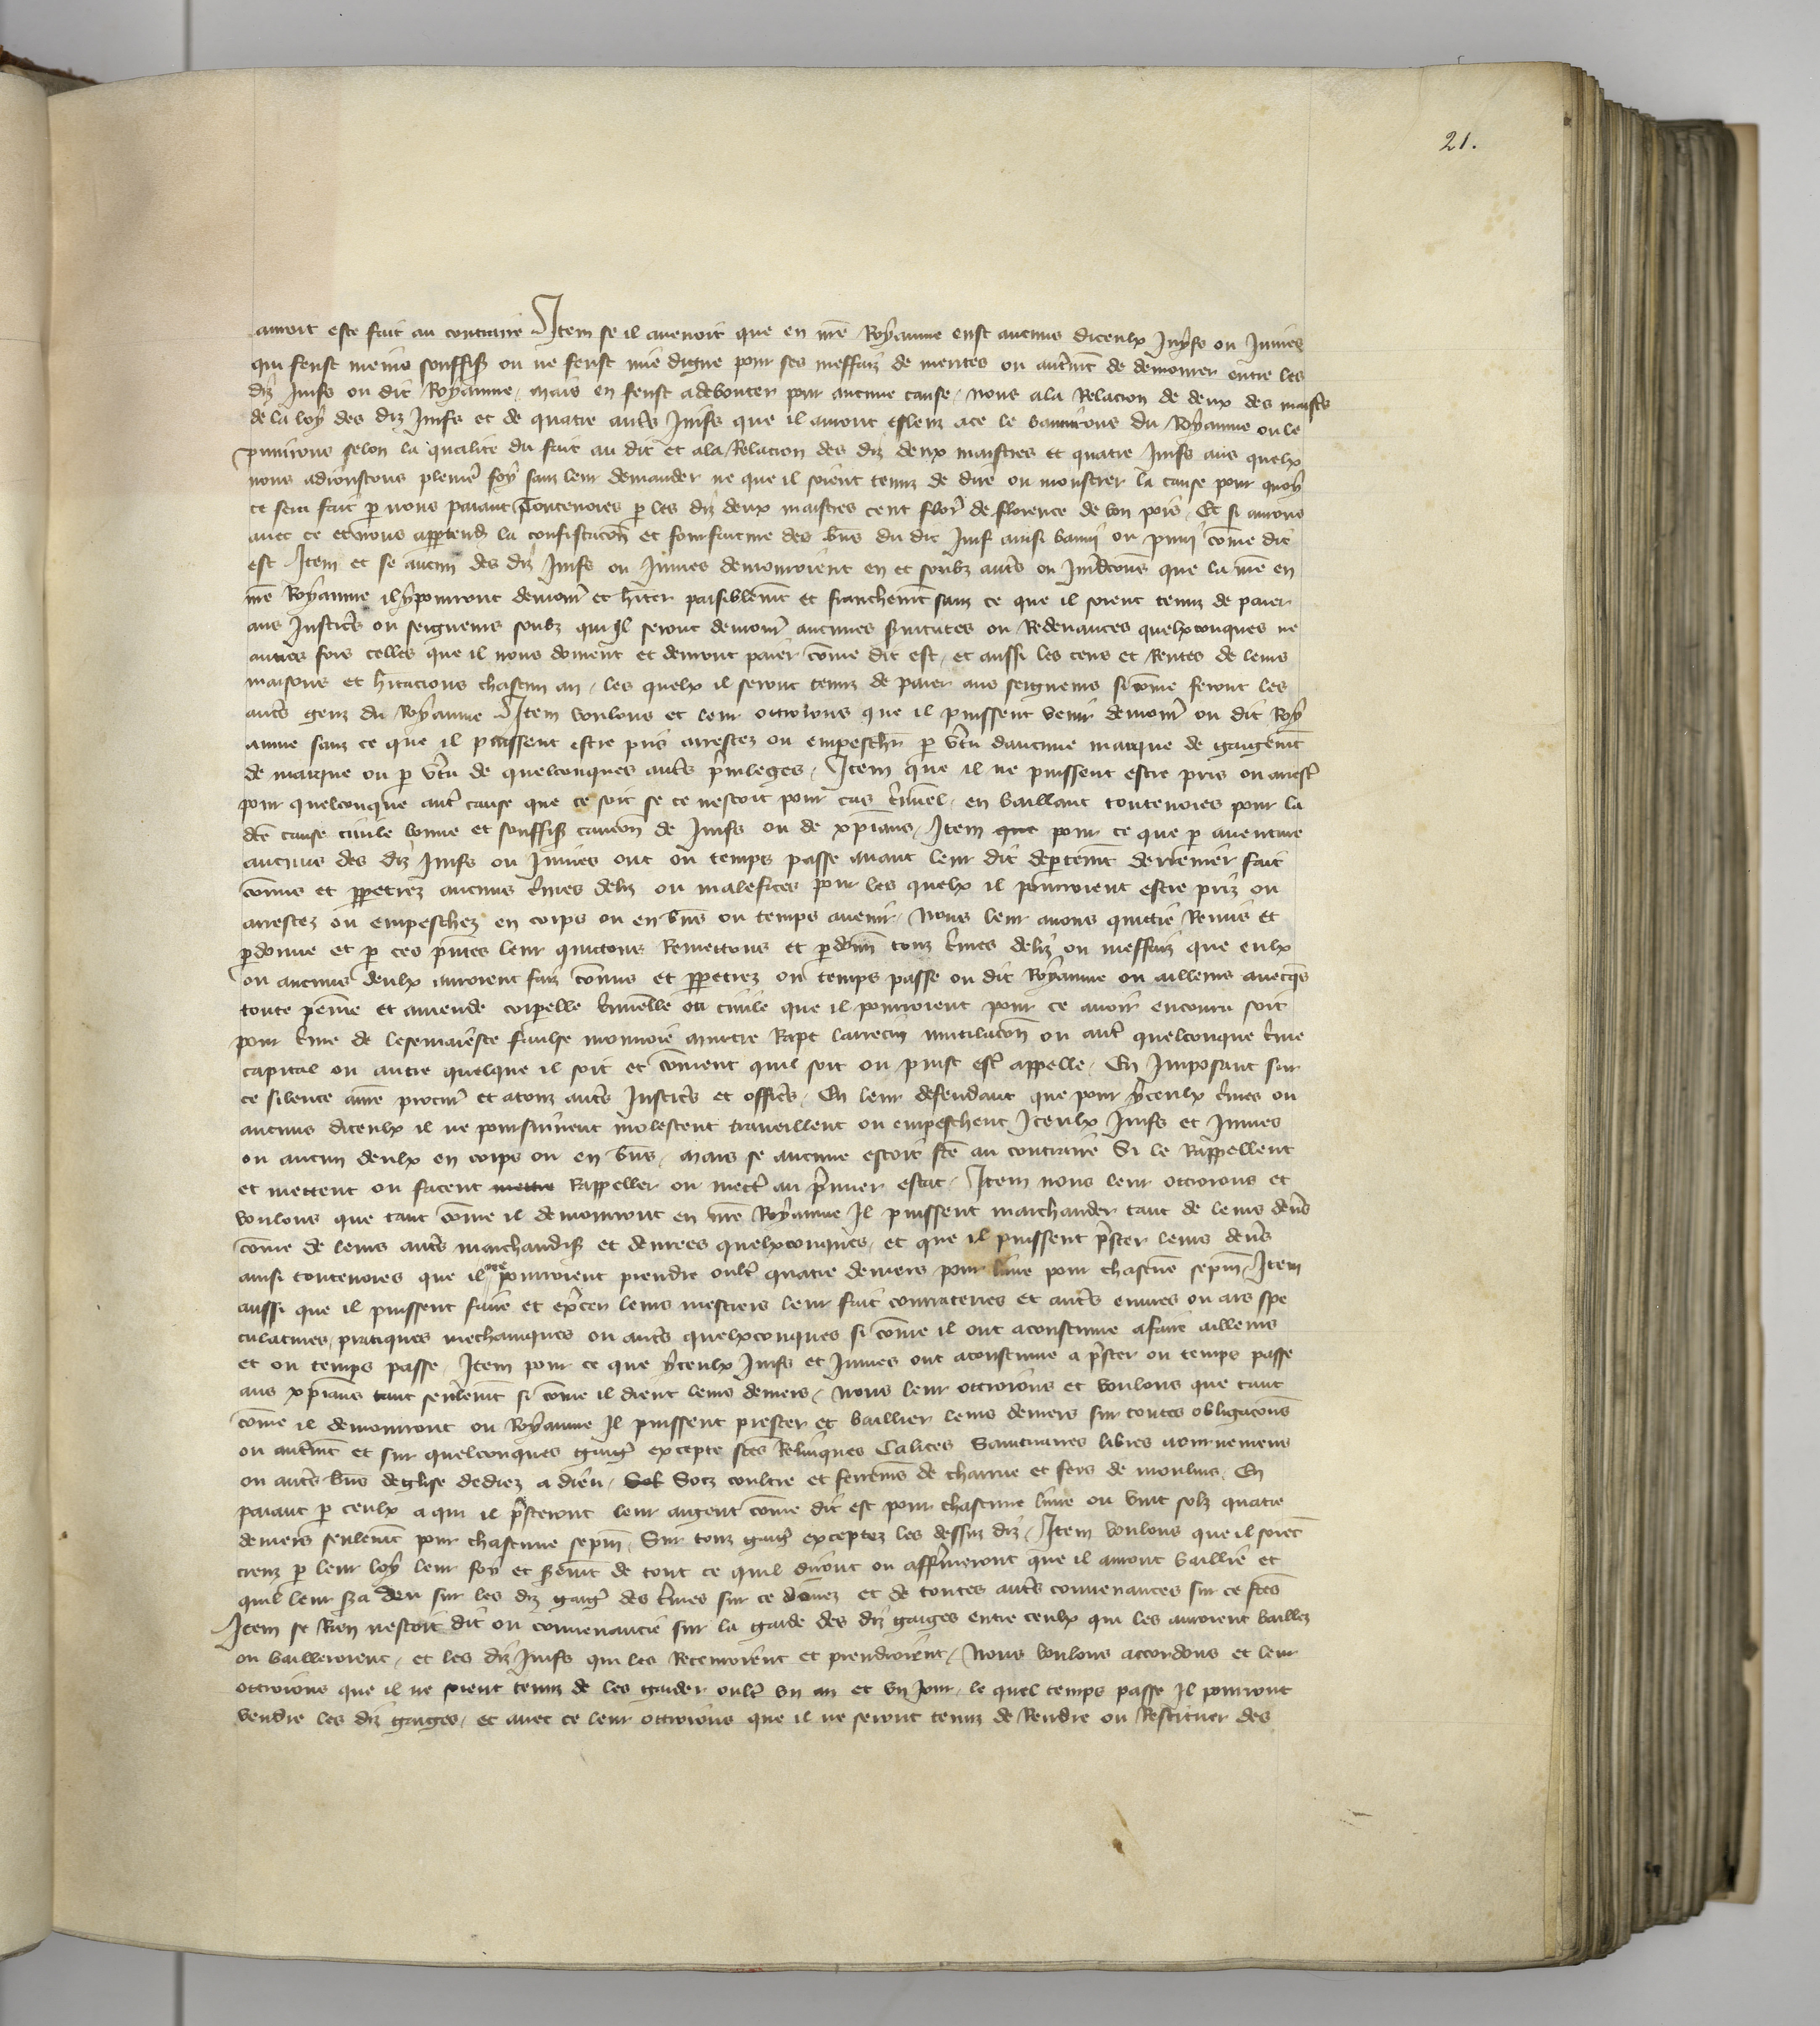 21.
auroit este fait au contraire Item se il avenoit que en nr̄e Royaume eust aucuns diceulx Juyfs ou Juives
qui feust meins souffis̄ ou ne feust mie digne pour ses meffaiz de merites ou autrem̄t de demourer entre les
diz Juifs ou dit Royaume, mais en feust a debouter pour aucune cause, nous a la Relacion de deux des maistr̄s
de la loy des diz Juifs et de quatre autr̄s Juifs que il auront esleuz a ce le bannirons du Royaume ou le
punirons selon la qualite du fait au dit et a la Relacion des diz deux maistres et quatre Juifs aus quelx
nous adjoustons plenier̄ foy sanz leur demander ne que il soient tenuz de dire ou monstrer la cause pour quoy
ce sera fait p̄ nous paiant toutevoies p̄ les diz deux maistres cent flor̄ de florence de bon pois, Et si aurons
avec ce et nous appartendr̄ la confiscacōn et forfaicture des bn̄s du dit Juif ainsi banni ou puni cōme dit
est Item et se aucun des diz Juifs ou Juives demouroient en et soubz autr̄s ou Jurid̄cions que la nr̄e en
nr̄e Royaume il y pourront demour̄ et hīter paisiblem̄t et franchem̄t sanz ce que il soient tenuz de paier
aus Justicīs ou seigneurs soubz qui Il seront demour̄ aucunes s̄vitutes ou Redevances quelxconques ne
autres fors celles que il nous doivent et devront paier cōme dit est, et aussi les cens et Rentes de leurs
maisons et hītacions chascun an, les quelx il seront tenuz de paier aus seigneurs si cōme feront les
autr̄s genz du Royaume Item voulons et leur ottroions que il puissent venir demour̄ ou dit Roy
aume sanz ce que il puissent estre pris arrestez ou empeschiez p̄ vr̄tu daucune marque de gaigem̄t
de marque ou p̄ vr̄tu de quelconques autr̄s p̄vileges, Item que il ne puissent estre pris ou arrest̄
pour quelconque autr̄ cause que ce soit se ce nestoit pour cas cr̄iminel, en baillant toutevoies pour la
dc̄e cause civile bonne et souffis̄ caucōn de Juifs ou de xp̄ians, Item que pour ce que p̄ aventure
aucuns des diz Juifs ou Juives ont ou temps passe avant leur dit dep̄tem̄t derrenier fait
cōmis et pp̄etrez aucuns cr̄imes deliz ou malefices pour les quelx il pourroient estre priz ou
arrestez ou empeschez en corps ou en bn̄s ou temps avenir, Nous leur avons quittie Remis et
p̄donne et p̄ ces pn̄tes leur quittons Remettons et p̄donn̄ touz cr̄imes deliz ou meffaiz que eulx
ou aucuns deulx auroient faiz cōmis et pp̄etrez ou temps passe ou dit Royaume ou ailleurs avecq̄s
toute peinne et amende corp̄elle cr̄iminelle ou civile que il pourroient pour ce avoir encouru soit
pour cr̄ime de lesemajeste faulse monnoie murtre Rapt larrecin mutilacōn ou autr̄ quelconque cr̄ime
capital ou autre quelque il soit et cōment quil soit ou puist est̄ appelle, En Imposant sur
ce silence a nr̄e procur̄ et a touz autr̄s Justicīs et officīs, En leur defendant que pour yceulx cr̄imes ou
aucuns diceulx il ne poursuivent molestent traveillent ou empeschent Iceulx Juifs et Juives
ou aucun deulx en corps ou en bn̄s, Mais se aucune estoit fc̄e au contraire Si le Rappellent
et mettent ou facent mettre Rappeller ou mectr̄ au p̄mier estat, Item nous leur ottroions et
voulons que tant cōme il demourront en nr̄e Royaume Il puissent marchander tant de leurs den̄s
cōme de leurs autr̄s marchandis̄ et denrees quelxconques, et que il puissent p̄ster leurs den̄s
ainsi toutevoies que il ne pourroient prendre oultr̄ quatre deniers pour livre pour chascune sepm̄, Item
aussi que il puissent faire et ex̄cer leurs mestiers leur fait courrateries et autr̄s euvres ou ars spe
culatives, pratiques mechaniques ou autr̄s quelxconques si cōme il ont acoustume a faire ailleurs
et ou temps passe, Item pour ce que yceulx Juifs et Juives ont acoustume a p̄ster ou temps passe
aus xp̄ians tant seulem̄t si cōme il dient leurs deniers, Nous leur ottroions et voulons que tant
cōme il demourront ou Royaume Il puissent prester et baillier leurs deniers sur toutes obligacōns
ou autrem̄t et sur quelconques gaiḡ excepte sc̄es Reliques Calices Sainctuaires livres aournemens
ou autr̄s bn̄s deglise dediez a dieu, Sok Socz coultre et ferrem̄s de charrue et fers de moulins, En
paiant p̄ ceulx a qui il p̄steront leur argent cōme dit est pour chascune livre ou vint solz quatre
deniers seulem̄t pour chascune sepm̄, Sur touz gaiḡ exceptez les dessus diz, Item voulons que il soiēt
creuz p̄ leur loy leur foy et s̄em̄t de tout ce quil diront ou affermeront que il auront baillie et
quil leur sera deu sur les diz gaiḡ des t̄mes sur ce donnez et de toutes autr̄s convenances sur ce fc̄es
Item se Rien nestoit dit ou convenancie sur la garde des diz gaiges entre ceulx qui les auroient baillez
ou bailleroient, et les diz Juifs qui les Recevroient et prendroient, Nous voulons accordons et leur
ottroions que il ne soient tenuz de les garder oultr̄ un an et un Jour, le quel temps passe Il pourront
vendre les diz gaiges, et avec ce leur ottroions que il ne seront tenuz de Rendre ou Restituer des